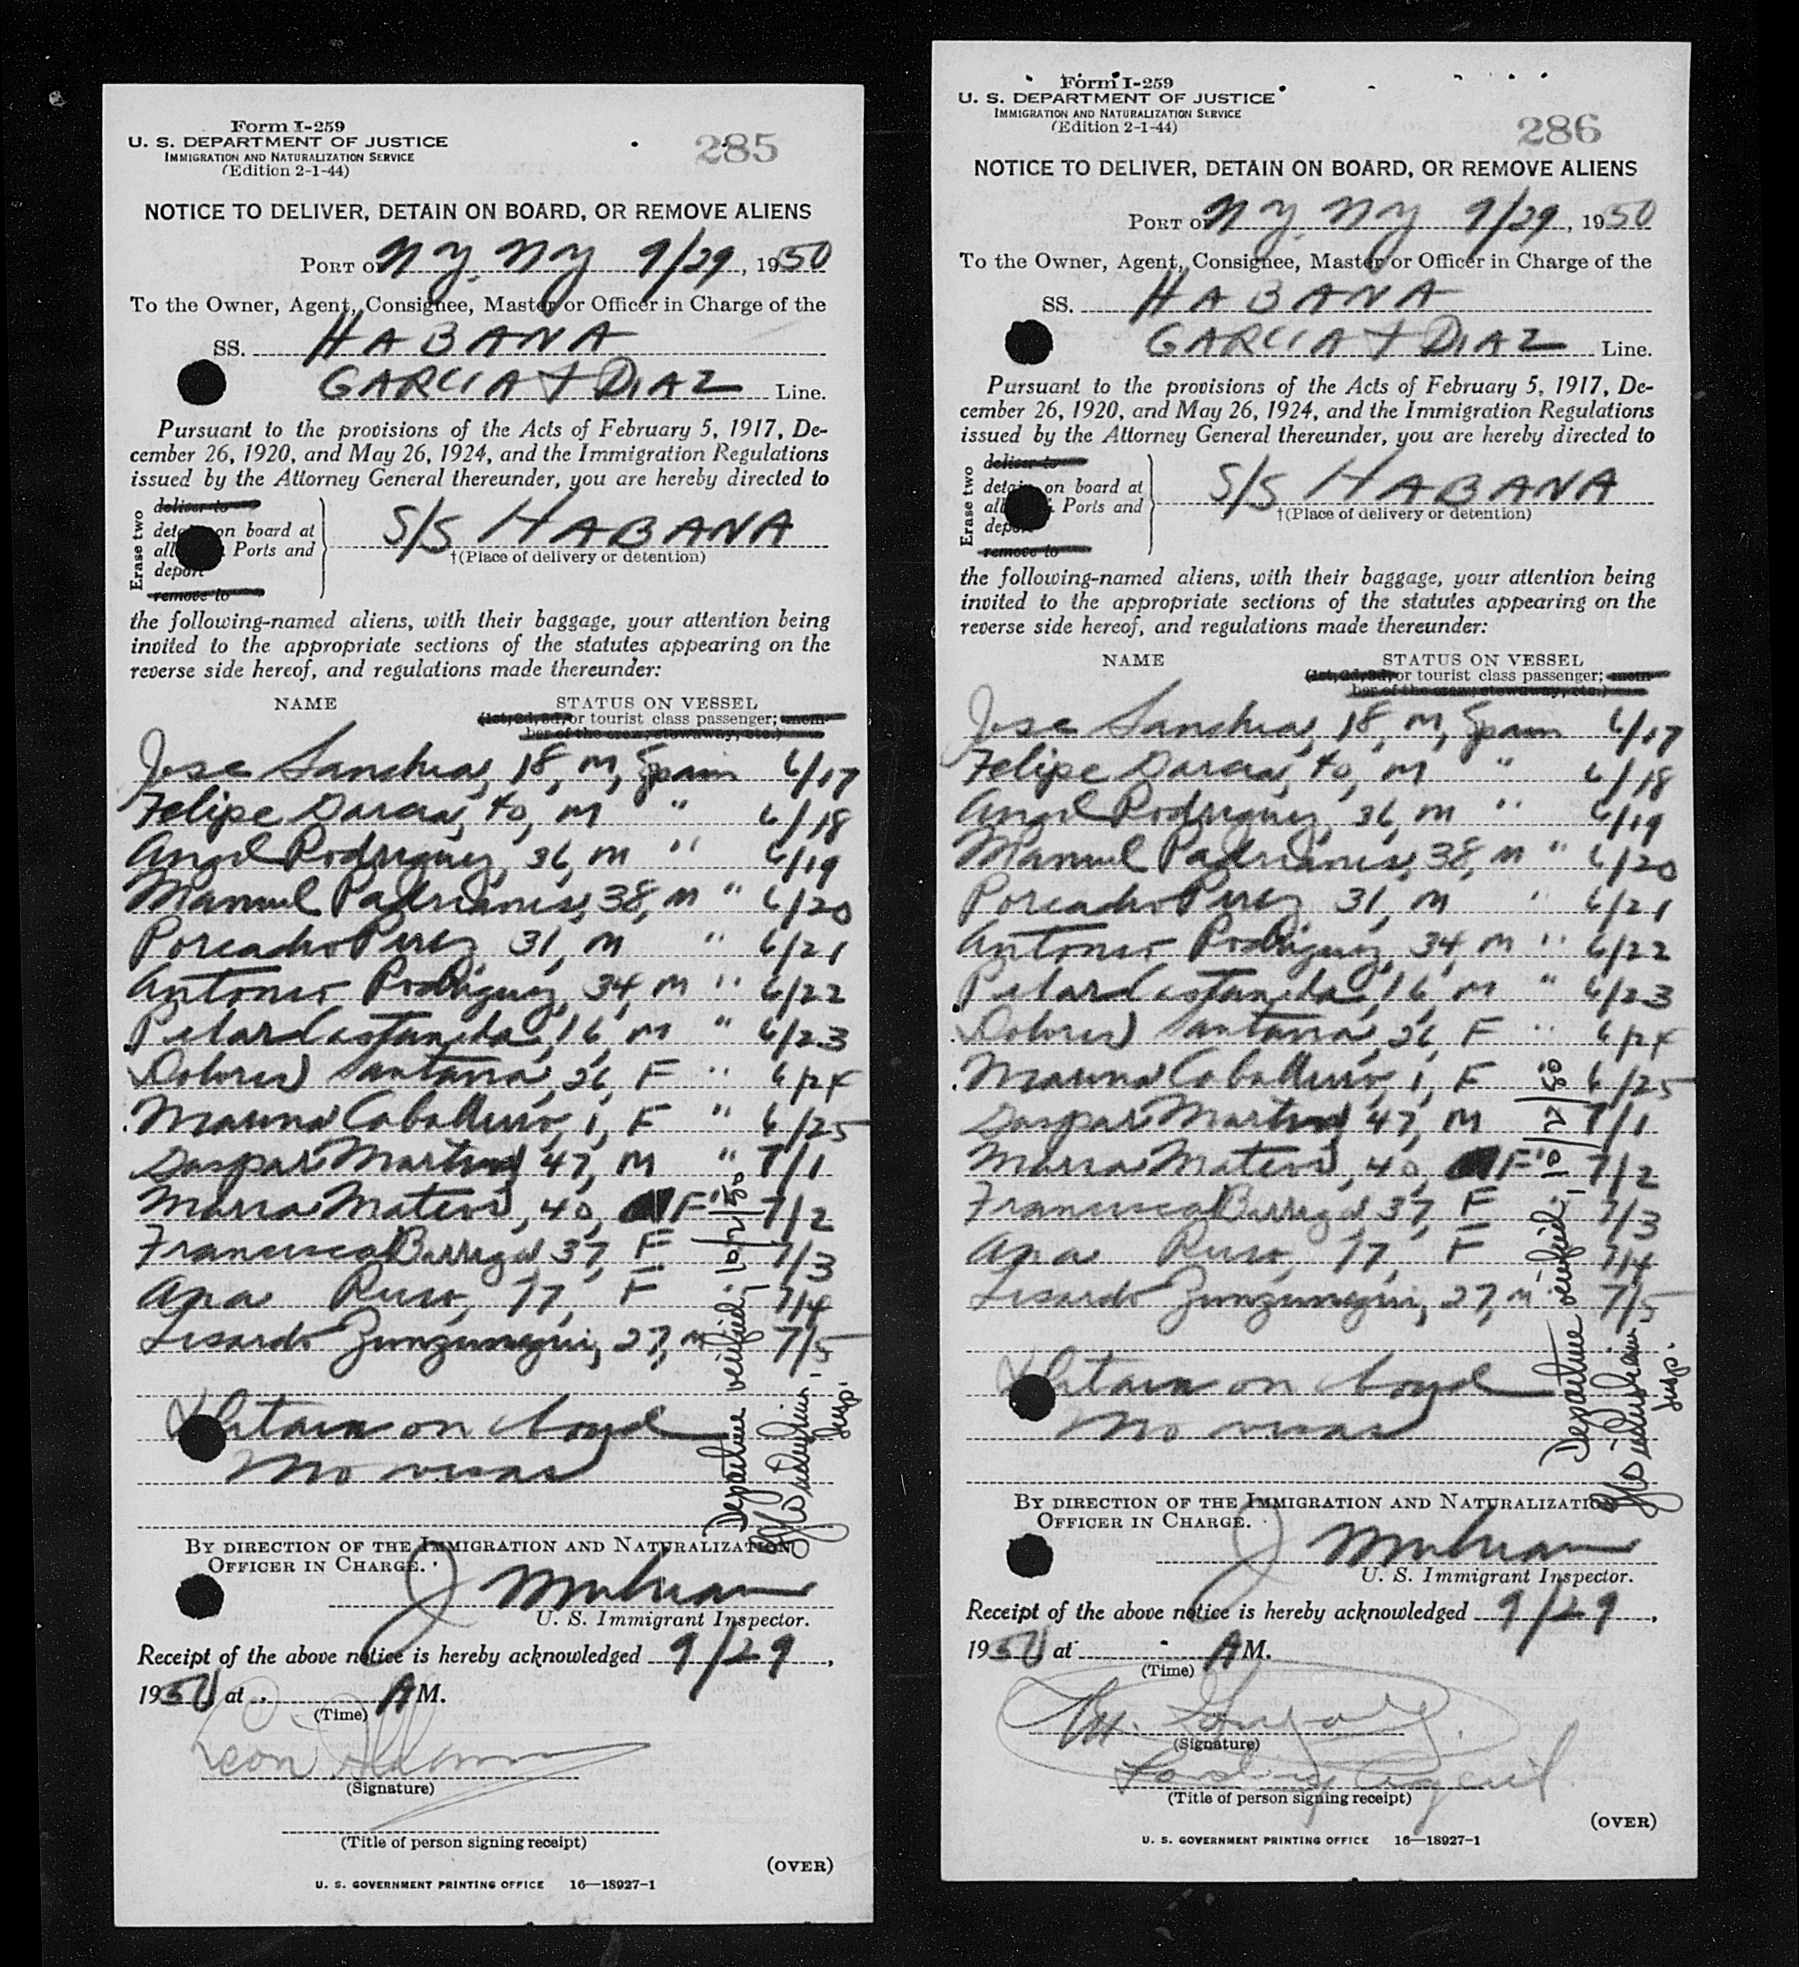 Form I-259
U. S. DEPARTMENT OF JUSTICE
IMMIGRATION AND NATURALIZATION SERVICE
(Edition 2-1-44)
285
NOTICE TO DELIVER, DETAIN ON BOARD, OR REMOVE ALIENS
PORT OF NY. NY 9/29, 1950
To the Owner, Agent, Consignee, Master or Officer in Charge of the
SS. HABANA
GARCIA + DIAZ Line.
Pursuant to the provisions of the Acts of February 5, 1917, De-
cember 26, 1920, and May 26, 1924, and the Immigration Regulations
issued by the Attorney General thereunder, you are hereby directed to
Erase two
deliver to
detain on board at
all Ports and
deport
remove to
S/S HABANA
†(Place of delivery or detention)
the following-named aliens, with their baggage, your attention being
invited to the appropriate sections of the statutes appearing on the
reverse side hereof, and regulations made thereunder:
NAME STATUS ON VESSEL
(1st, 2d, 3d, or tourist class passenger; mem-
ber of the crew, stowaway, etc.)
Jose 18, M, Spain 6/17
Felipe Garcia, 40, M " 6/18
Angel Rodriguez, 36, M " 6/19
Manuel 38, M " 6/20
Perez 31, M " 6/21
Antonio Rodriguez, 34, M " 6/22
Pilar Castaneda, 16, M " 6/23
Dolores Santana, 26, F " 6/24
Marina Caballero, 1, F " 6/25
Gaspar Martin 47, M " 7/1
Maria Mateos, 40, F " 7/2
Francisca 37, F 7/3
Ana 77, F 7/4
Lisardo Zunzunegui, 27, M 7/5
Detain on board
no visas
Departure verified, 10/2/50
Insp.
BY DIRECTION OF THE IMMIGRATION AND NATURALIZATION
OFFICER IN CHARGE.
J
U. S. Immigrant Inspector.
Receipt of the above notice is hereby acknowledged 9/29,
1950 at AM.
(Time)
Leon
(Signature)
(Title of person signing receipt)
(OVER)
U. S. GOVERNMENT PRINTING OFFICE 16—18927-1
Form I-259
U. S. DEPARTMENT OF JUSTICE
IMMIGRATION AND NATURALIZATION SERVICE
(Edition 2-1-44)
286
NOTICE TO DELIVER, DETAIN ON BOARD, OR REMOVE ALIENS
PORT OF NY. NY 9/29, 1950
To the Owner, Agent, Consignee, Master or Officer in Charge of the
SS. HABANA
GARCIA + DIAZ Line.
Pursuant to the provisions of the Acts of February 5, 1917, De-
cember 26, 1920, and May 26, 1924, and the Immigration Regulations
issued by the Attorney General thereunder, you are hereby directed to
Erase two
deliver to
detain on board at
all Ports and
deport
remove to
S/S HABANA
†(Place of delivery or detention)
the following-named aliens, with their baggage, your attention being
invited to the appropriate sections of the statutes appearing on the
reverse side hereof, and regulations made thereunder:
NAME STATUS ON VESSEL
(1st, 2d, 3d, or tourist class passenger; mem-
ber of the crew, stowaway, etc.)
Jose 18, M, Spain 6/17
Felipe Garcia, 40, M " 6/18
Angel Rodriguez, 36, M " 6/19
Manuel 38, M " 6/20
Perez 31, M " 6/21
Antonio Rodriguez, 34, M " 6/22
Pilar Castaneda, 16, M " 6/23
Dolores Santana, 26, F " 6/24
Marina Caballero, 1, F 6/25
Gaspar Martin 47, M 7/1
Maria Mateos, 40, F " 7/2
Francisca 37, F 7/3
Ana 77, F 7/4
Lisardo Zunzunegui, 27, M 7/5
Detain on board
no visas
Departure verified, 10/2/50
Insp.
BY DIRECTION OF THE IMMIGRATION AND NATURALIZATION
OFFICER IN CHARGE.
J
U. S. Immigrant Inspector.
Receipt of the above notice is hereby acknowledged 9/29,
1950 at AM.
(Time)
(Signature)
Agent
(Title of person signing receipt)
(OVER)
U. S. GOVERNMENT PRINTING OFFICE 16—18927-1